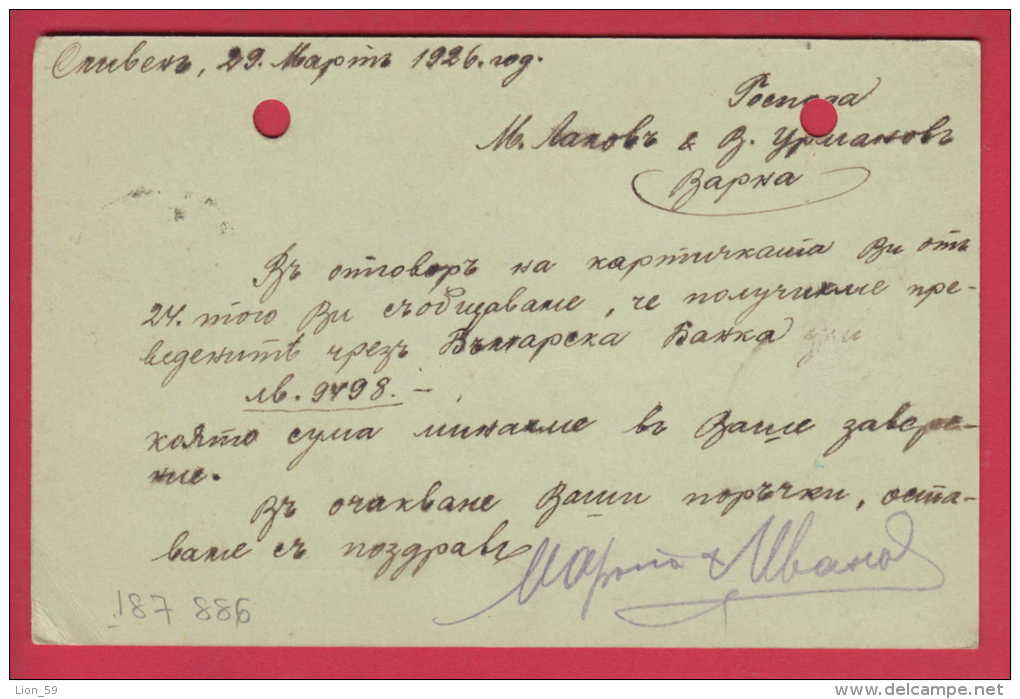 Сливенъ, 29. Мартъ 1926. год.
Господа
М. Лаковъ & В. Урмановъ
Варна
Въ отговоръ на картичката Ви отъ
27. того Ви съобщаваме, че получихме пре-
веденитѣ чрезъ Българска Банка
лв. 9798.-
която сума минахме въ Ваше завере-
ние.
Въ очакване Ваши поръчки, оста-
ваме съ поздравъ
& Иванов
187 886
Lion_59
www.delcampe.net